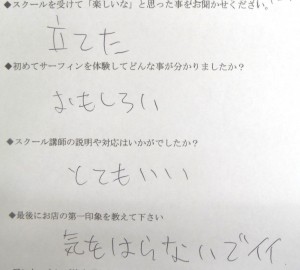 ◆スクールを受けて「楽しいな」と思った事をお聞かせください。
立てた
◆初めてサーフィンを体験してどんな事が分かりましたか？
おもしろい
◆スクール講師の説明や対応はいかがでしたか？
とてもいい
◆最後にお店の第一印象を教えて下さい
気をはらないでイイ